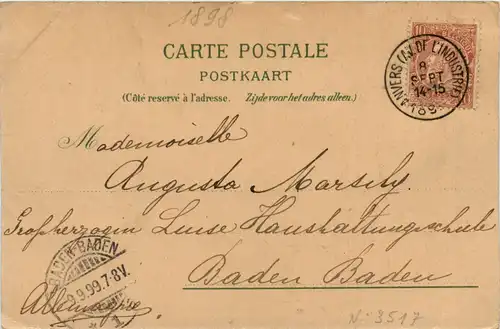 1898
CARTE POSTALE
POSTKAART
(Côté reservé à l'adresse. Zijde voor het adres alleen.)
10
ANVERS (AV. DE L'INDUSTRIE)
8
SEPT
14-15
189
Mademoiselle
Augusta Marsily
Grossherzogin Luise Haushaltungsschule
Baden Baden
BADEN-BADEN
9.9.99.7-8V.
Allemagne
N. 3517